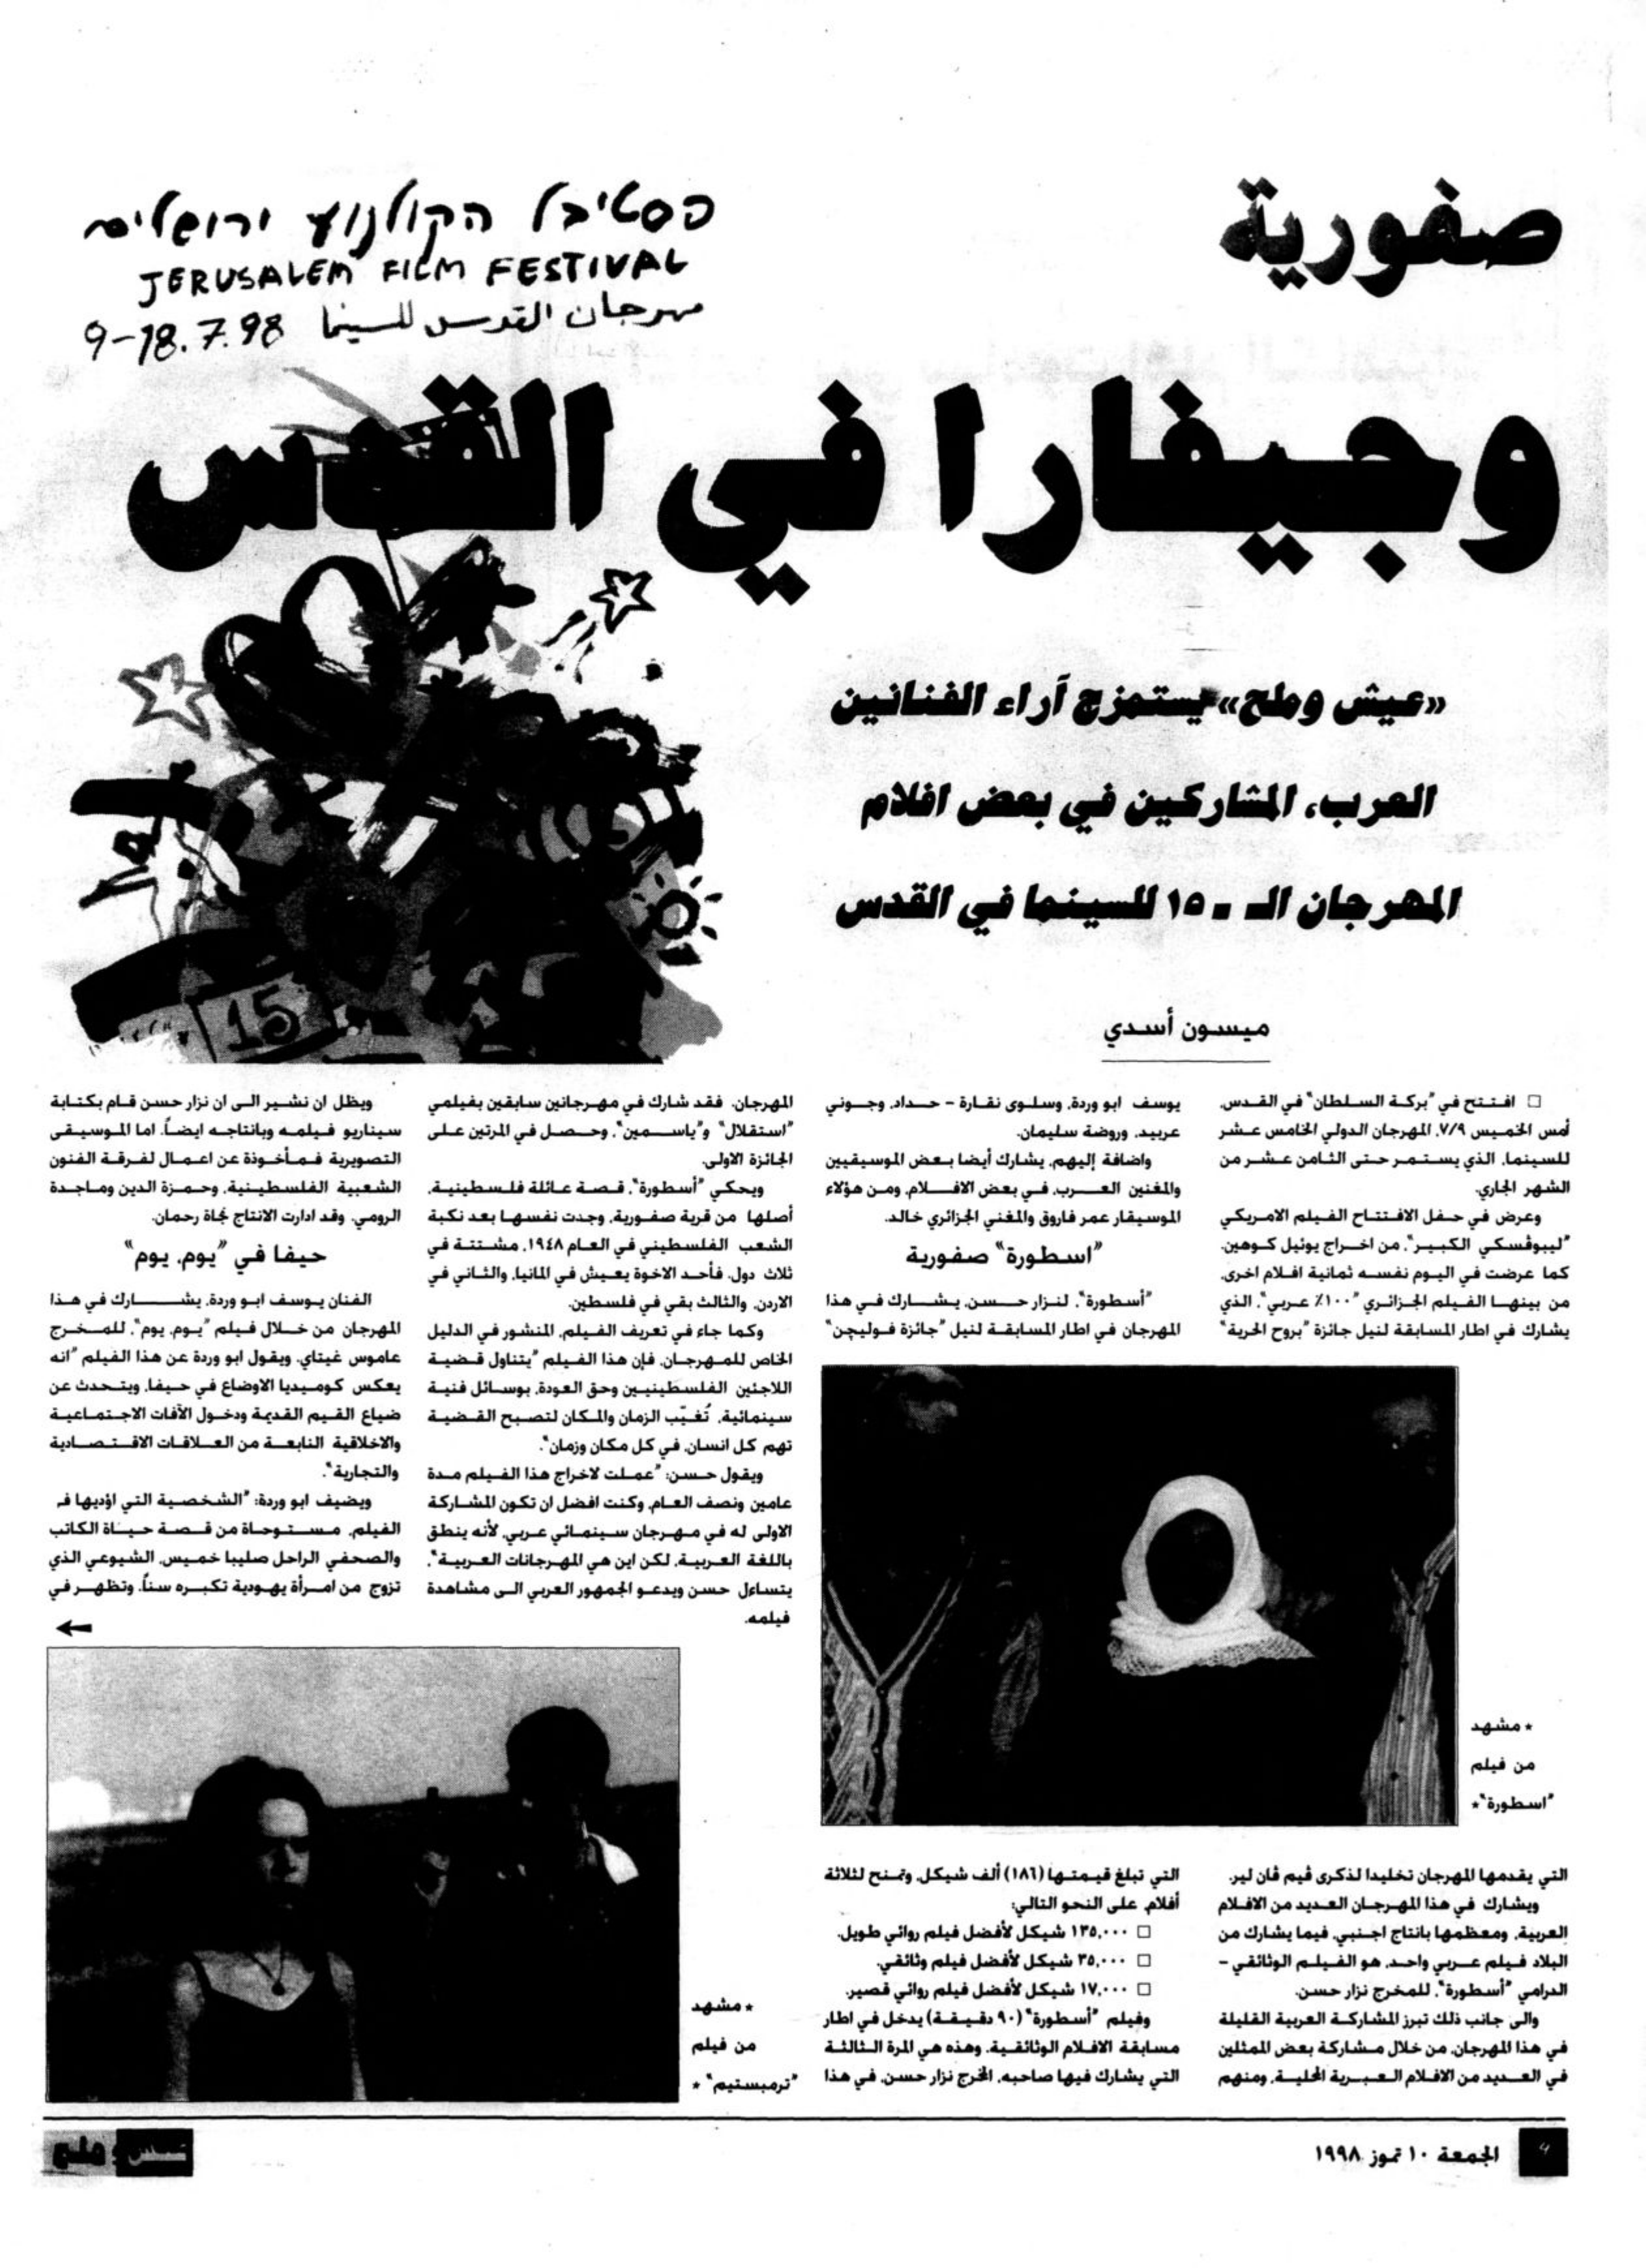 صفورية
وجيفارا في القدس
פסטיבל הקולנוע ירושלים
JERUSALEM FILM FESTIVAL
مهرجان القدس للسينما 9-18.7.98
15
«عيش وملح» يستمزج آراء الفنانين
العرب، المشاركين في بعض افلام
المهرجان الـ - ١٥ للسينما في القدس
ميسون أسدي
□ افتتح في "بركة السلطان" في القدس،
أمس الخميس ٧/٩، المهرجان الدولي الخامس عشر
للسينما، الذي يستمر حتى الثامن عشر من
الشهر الجاري.
وعرض في حفل الافتتاح الفيلم الامريكي
"ليبوفسكي الكبير"، من اخراج يوئيل كوهين.
كما عرضت في اليوم نفسه ثمانية افلام اخرى،
من بينها الفيلم الجزائري "١٠٠٪ عربي"، الذي
يشارك في اطار المسابقة لنيل جائزة "بروح الحرية"
التي يقدمها المهرجان تخليدا لذكرى ڤيم ڤان لير.
ويشارك في هذا المهرجان العديد من الافلام
العربية، ومعظمها بانتاج اجنبي، فيما يشارك من
البلاد فيلم عربي واحد، هو الفيلم الوثائقي -
الدرامي "أسطورة"، للمخرج نزار حسن.
والى جانب ذلك تبرز المشاركة العربية القليلة
في هذا المهرجان، من خلال مشاركة بعض الممثلين
في العديد من الافلام العبرية المحلية، ومنهم
يوسف ابو وردة، وسلوى نقارة - حداد، وجوني
عربيد، وروضة سليمان.
واضافة إليهم، يشارك أيضا بعض الموسيقيين
والمغنين العرب، في بعض الافلام، ومن هؤلاء
الموسيقار عمر فاروق والمغني الجزائري خالد.
"اسطورة" صفورية
"أسطورة"، لنزار حسن، يشارك في هذا
المهرجان في اطار المسابقة لنيل "جائزة فوليچن"
التي تبلغ قيمتها (١٨٦) ألف شيكل، وتمنح لثلاثة
أفلام، على النحو التالي:
□ ١٣٥,٠٠٠ شيكل لأفضل فيلم روائي طويل.
□ ٣٥,٠٠٠ شيكل لأفضل فيلم وثائقي.
□ ١٧,٠٠٠ شيكل لأفضل فيلم روائي قصير.
وفيلم "أسطورة" (٩٠ دقيقة) يدخل في اطار
مسابقة الافلام الوثائقية، وهذه هي المرة الثالثة
التي يشارك فيها صاحبه، المخرج نزار حسن، في هذا
المهرجان، فقد شارك في مهرجانين سابقين بفيلمي
"استقلال" و"ياسمين"، وحصل في المرتين على
الجائزة الاولى.
ويحكي "أسطورة"، قصة عائلة فلسطينية،
أصلها من قرية صفورية، وجدت نفسها بعد نكبة
الشعب الفلسطيني في العام ١٩٤٨، مشتتة في
ثلاث دول، فأحد الاخوة يعيش في المانيا، والثاني في
الاردن، والثالث بقي في فلسطين.
وكما جاء في تعريف الفيلم، المنشور في الدليل
الخاص للمهرجان، فإن هذا الفيلم "يتناول قضية
اللاجئين الفلسطينيين وحق العودة، بوسائل فنية
سينمائية، تُغيّب الزمان والمكان لتصبح القضية
تهم كل انسان، في كل مكان وزمان".
ويقول حسن: "عملت لاخراج هذا الفيلم مدة
عامين ونصف العام، وكنت افضل ان تكون المشاركة
الاولى له في مهرجان سينمائي عربي، لأنه ينطق
باللغة العربية، لكن اين هي المهرجانات العربية"،
يتساءل حسن ويدعو الجمهور العربي الى مشاهدة
فيلمه.
ويظل ان نشير الى ان نزار حسن قام بكتابة
سيناريو فيلمه وبانتاجه ايضاً، اما الموسيقى
التصويرية فمأخوذة عن اعمال لفرقة الفنون
الشعبية الفلسطينية، وحمزة الدين وماجدة
الرومي. وقد ادارت الانتاج نجاة رحمان.
حيفا في "يوم، يوم"
الفنان يوسف ابو وردة، يشارك في هذا
المهرجان من خلال فيلم "يوم، يوم"، للمخرج
عاموس غيتاي. ويقول ابو وردة عن هذا الفيلم "انه
يعكس كوميديا الاوضاع في حيفا، ويتحدث عن
ضياع القيم القديمة ودخول الآفات الاجتماعية
والاخلاقية النابعة من العلاقات الاقتصادية
والتجارية".
ويضيف ابو وردة: "الشخصية التي اؤديها في
الفيلم، مستوحاة من قصة حياة الكاتب
والصحفي الراحل صليبا خميس، الشيوعي الذي
تزوج من امرأة يهودية تكبره سناً، وتظهر في
←
* مشهد
من فيلم
"اسطورة"*
* مشهد
من فيلم
"ترمبستيم" *
٩
الجمعة ١٠ تموز ١٩٩٨
عيش وملح